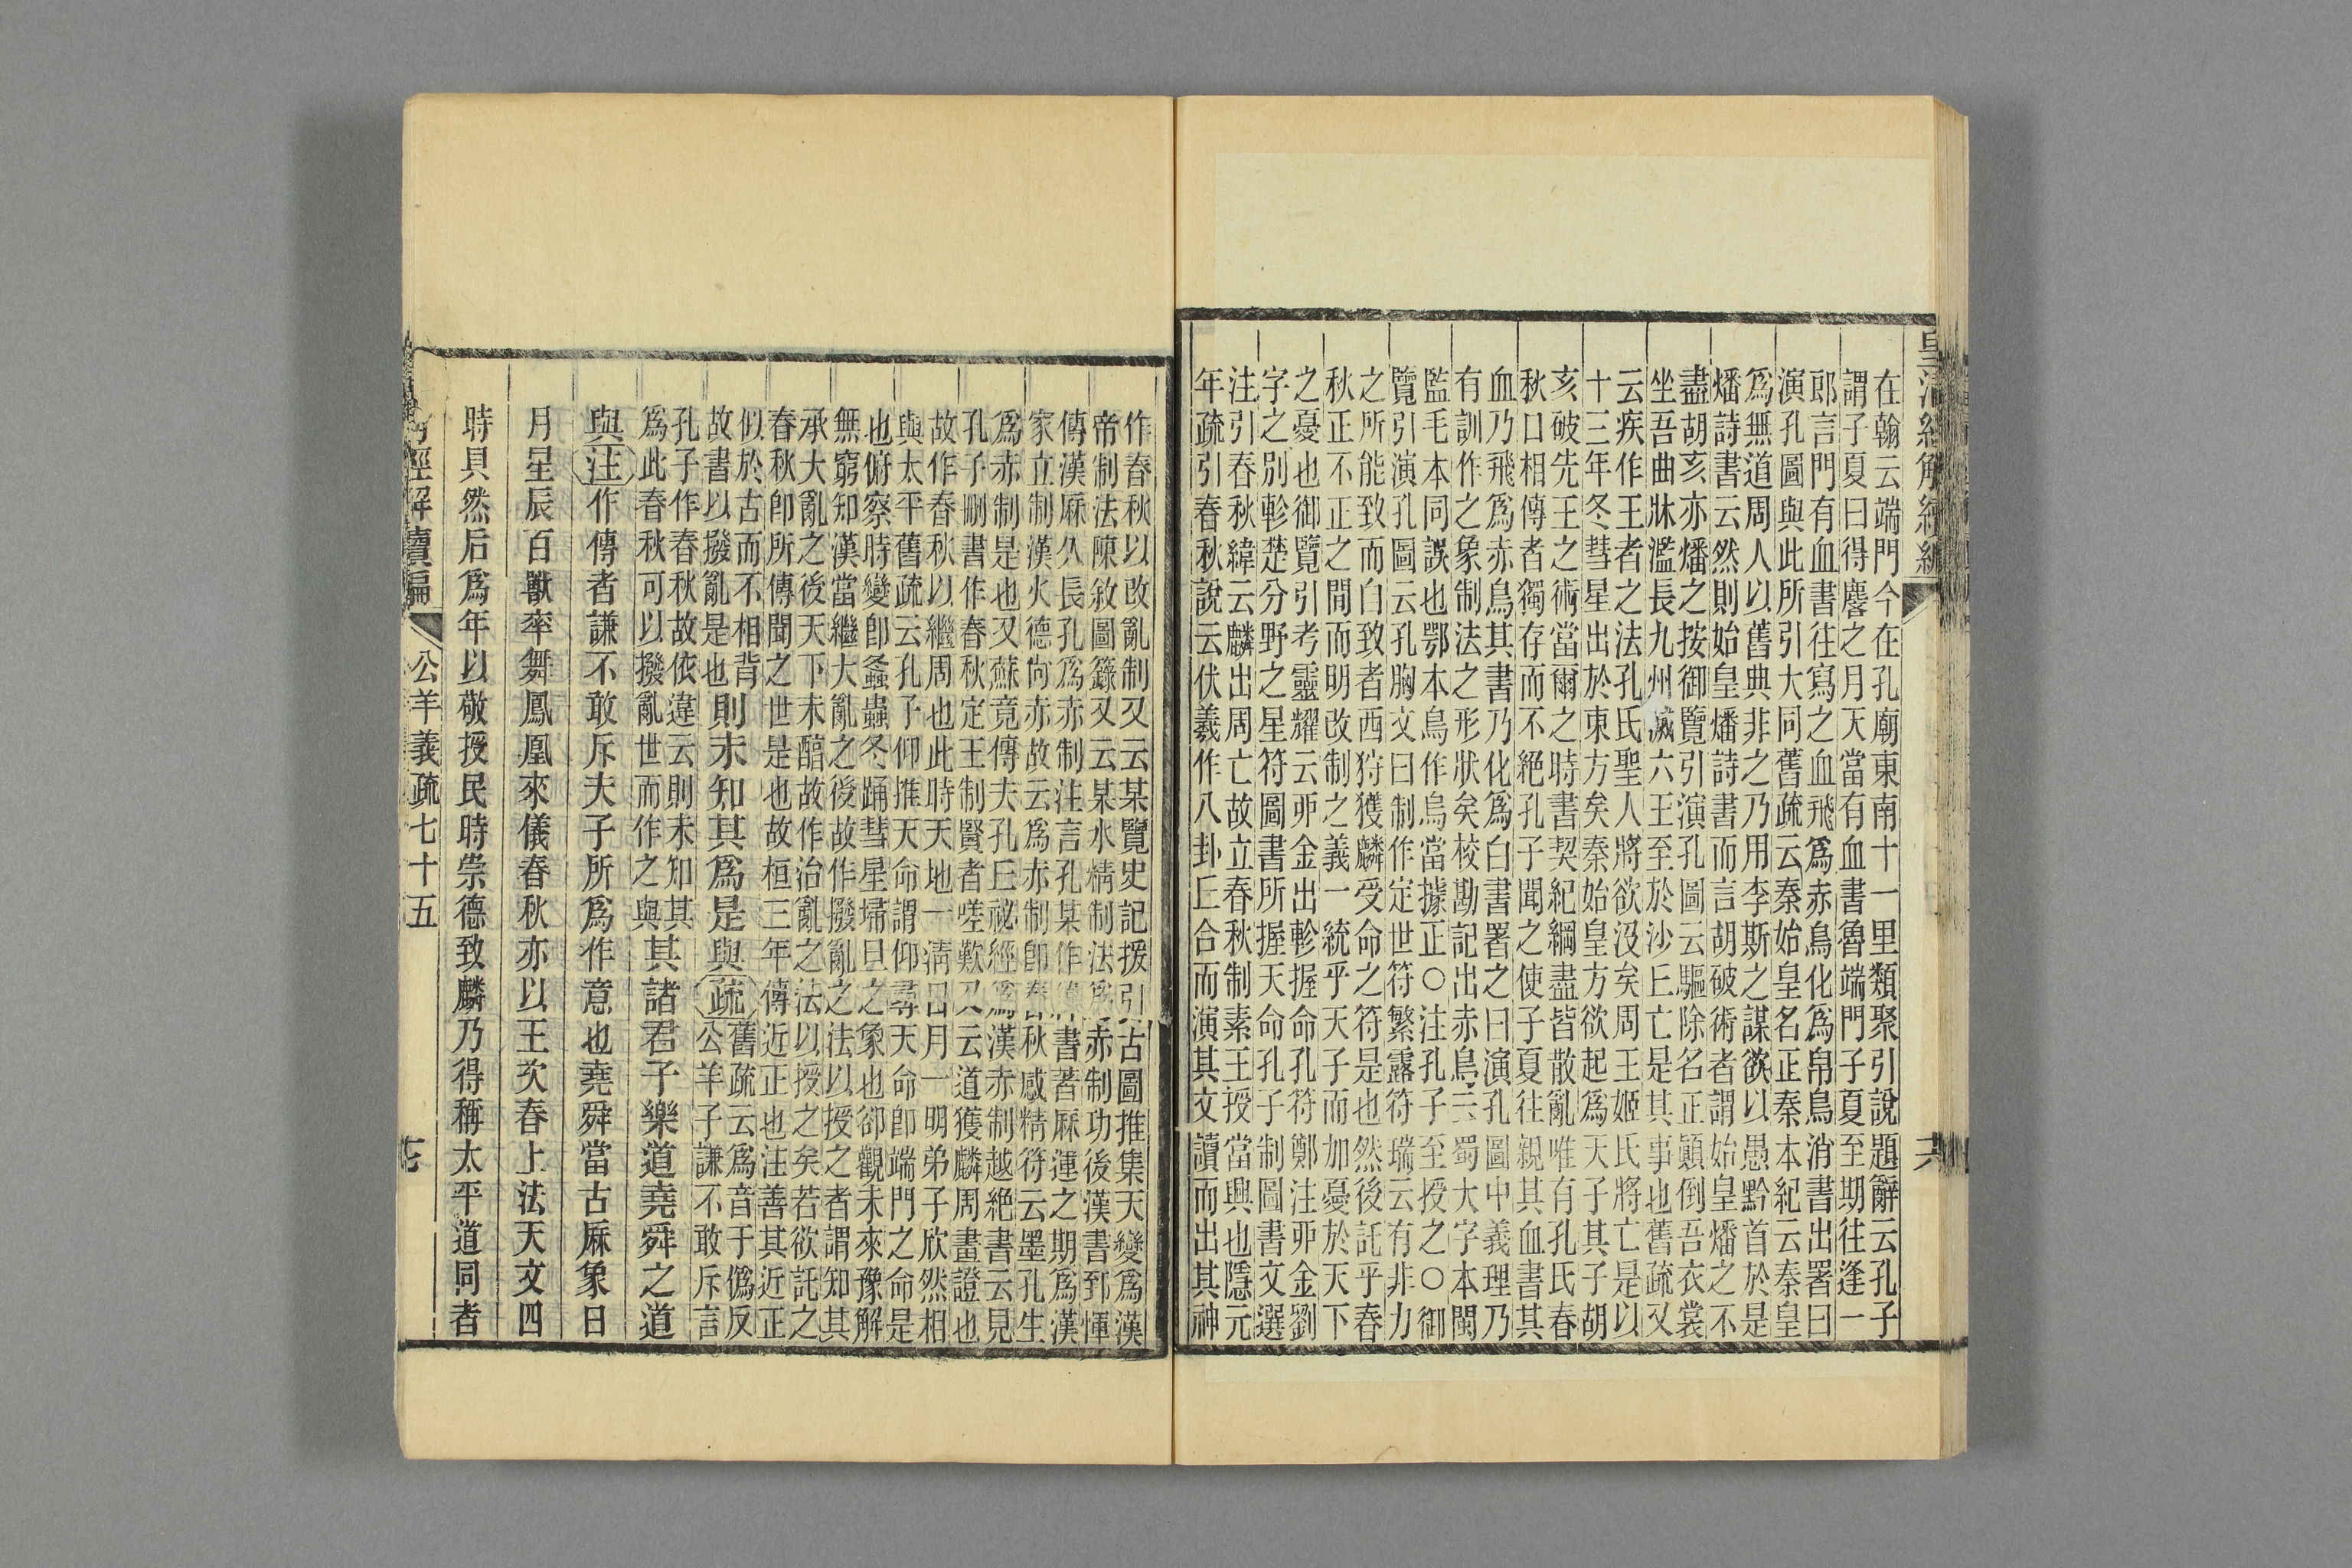 皇清經解續編
在翰云端門今在孔廟東南十一里類聚引說題辭云孔子
謂子夏曰得麐之月天當有血書魯端門子夏至期往逢一
郎言門有血書往寫之血飛爲赤鳥化爲帛鳥消書出署曰
演孔圖與此所引大同舊疏云秦始皇名正秦本紀云秦皇
爲無道周人以舊典非之乃用李斯之謀欲以愚黔首於是
燔詩書云然則始皇燔詩書而言胡破術者謂始皇燔之不
盡胡亥亦燔之按御覽引演孔圖云驅除名正顛倒吾衣裳
坐吾曲牀濫長九州滅六王至於沙丘亡是其事也舊疏又
云疾作王者之法孔氏聖人將欲沒矣周王姬氏將亡是以
十三年冬彗星出於東方矣秦始皇方欲起爲天子其子胡
亥破先王之術當爾之時書契紀綱盡皆散亂唯有孔氏春
秋口相傳者獨存而不絕孔子聞之使子夏往親其血書其
血乃飛爲赤鳥其書乃化爲白書署之曰演孔圖中義理乃
有訓作之象制法之形狀矣校勘記出赤鳥云蜀大字本閩
監毛本同誤也鄂本鳥作烏當據正○注孔子至授之○御
覽引演孔圖云孔胸文曰制作定世符繁露符瑞云有非力
之所能致而白致者西狩獲麟受命之符是也然後託乎春
秋正不正之間而明改制之義一統乎天子而加憂於天下
之憂也御覽引考靈耀云丣金出軫握命孔符鄭注丣金劉
字之別軫楚分野之星符圖書所握天命孔子制圖書文選
注引春秋緯云麟出周亡故立春秋制素王授當興也隱元
年疏引春秋說云伏羲作八卦丘合而演其文讀而出其神
作春秋以改亂制又云某覽史記援引古圖推集天變爲漢
帝制法陳敘圖籙又云某水精制法爲赤制功後漢書郅惲
傳漢厤久長孔爲赤制注言孔某作書著厤運之期爲漢
家立制漢火德尚赤故云爲赤制卽春秋感精符云墨孔生
爲赤制是也又蘇竟傳夫孔丘祕經爲漢赤制越絕書云見
孔子刪書作春秋定王制賢者嗟歎又云道獲麟周盡證也
故作春秋以繼周也此時天地一清日月一明弟子欣然相
與太平舊疏云孔子仰推天命謂仰尋天命卽端門之命是
也俯察時變卽螽蟲冬踊彗星埽旦之象也卻觀未來豫解
無窮知漢當繼大亂之後故作撥亂之法以授之者謂知其
承大亂之後天下未醕故作治亂之法以授之矣若欲託之
春秋卽所傳聞之世是也故桓三年傳近正也注善其近正
似於古而不相背
故書以撥亂是也則未知其爲是與疏舊疏云爲音于僞反
公羊子謙不敢斥言
孔子作春秋故依違云則未知其
爲此春秋可以撥亂世而作之與其諸君子樂道堯舜之道
與注作傳者謙不敢斥夫子所爲作意也堯舜當古厤象日
月星辰百獸率舞鳳凰來儀春秋亦以王次春上法天文四
時具然后爲年以敬授民時崇德致麟乃得稱太平道同者
經解續編 公羊義疏七十五